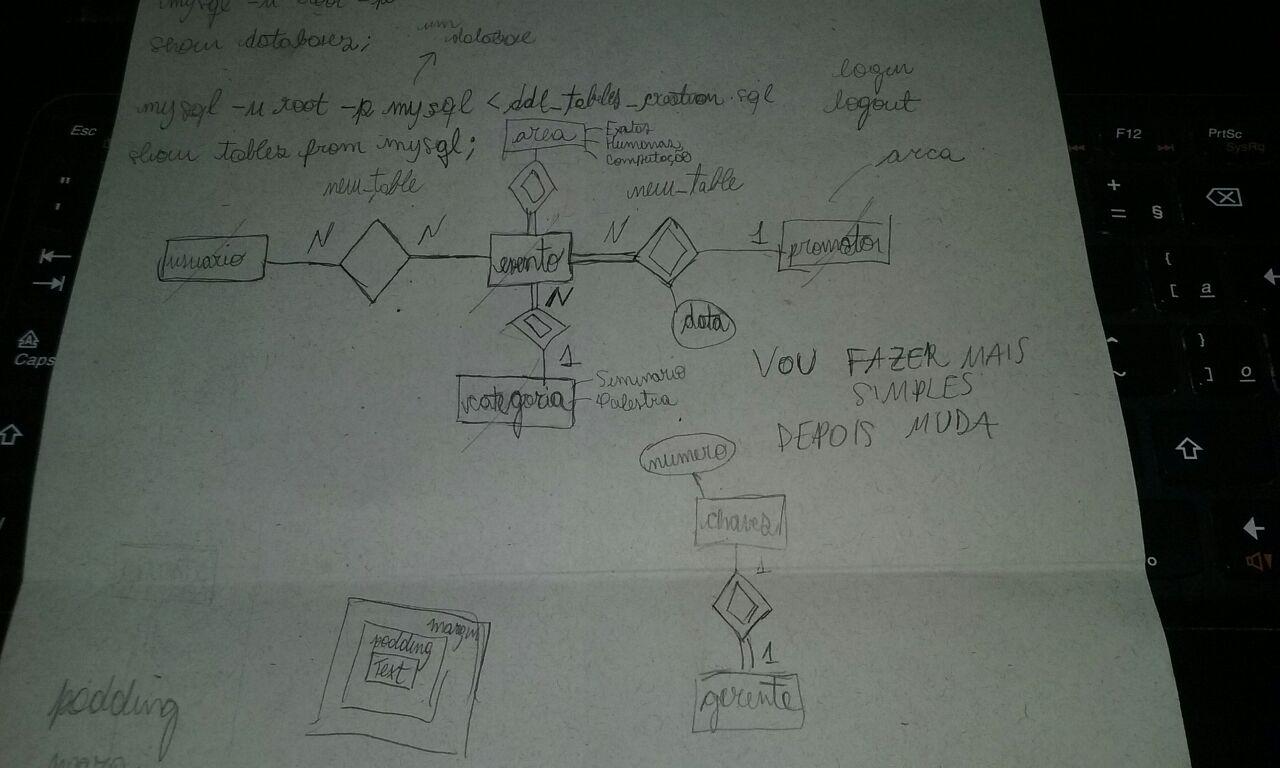 mysql -u root -p
show databases;
um database
mysql -u root -p mysql < ddl_tables_creation.sql
show tables from mysql;
login
logout
area
Exatas
Humanas
Computação
area
new_table
new_table
usuario
N
N
evento
N
1
promotor
data
N
1
categoria
Seminario
Palestra
VOU FAZER MAIS
SIMPLES
DEPOIS MUDA
numero
chaves
1
1
gerente
margin
padding
Text
padding
Esc
"
'
Caps
F12
PrtSc
SysRq
+
=
§
{
[
a
}
]
o
^
~